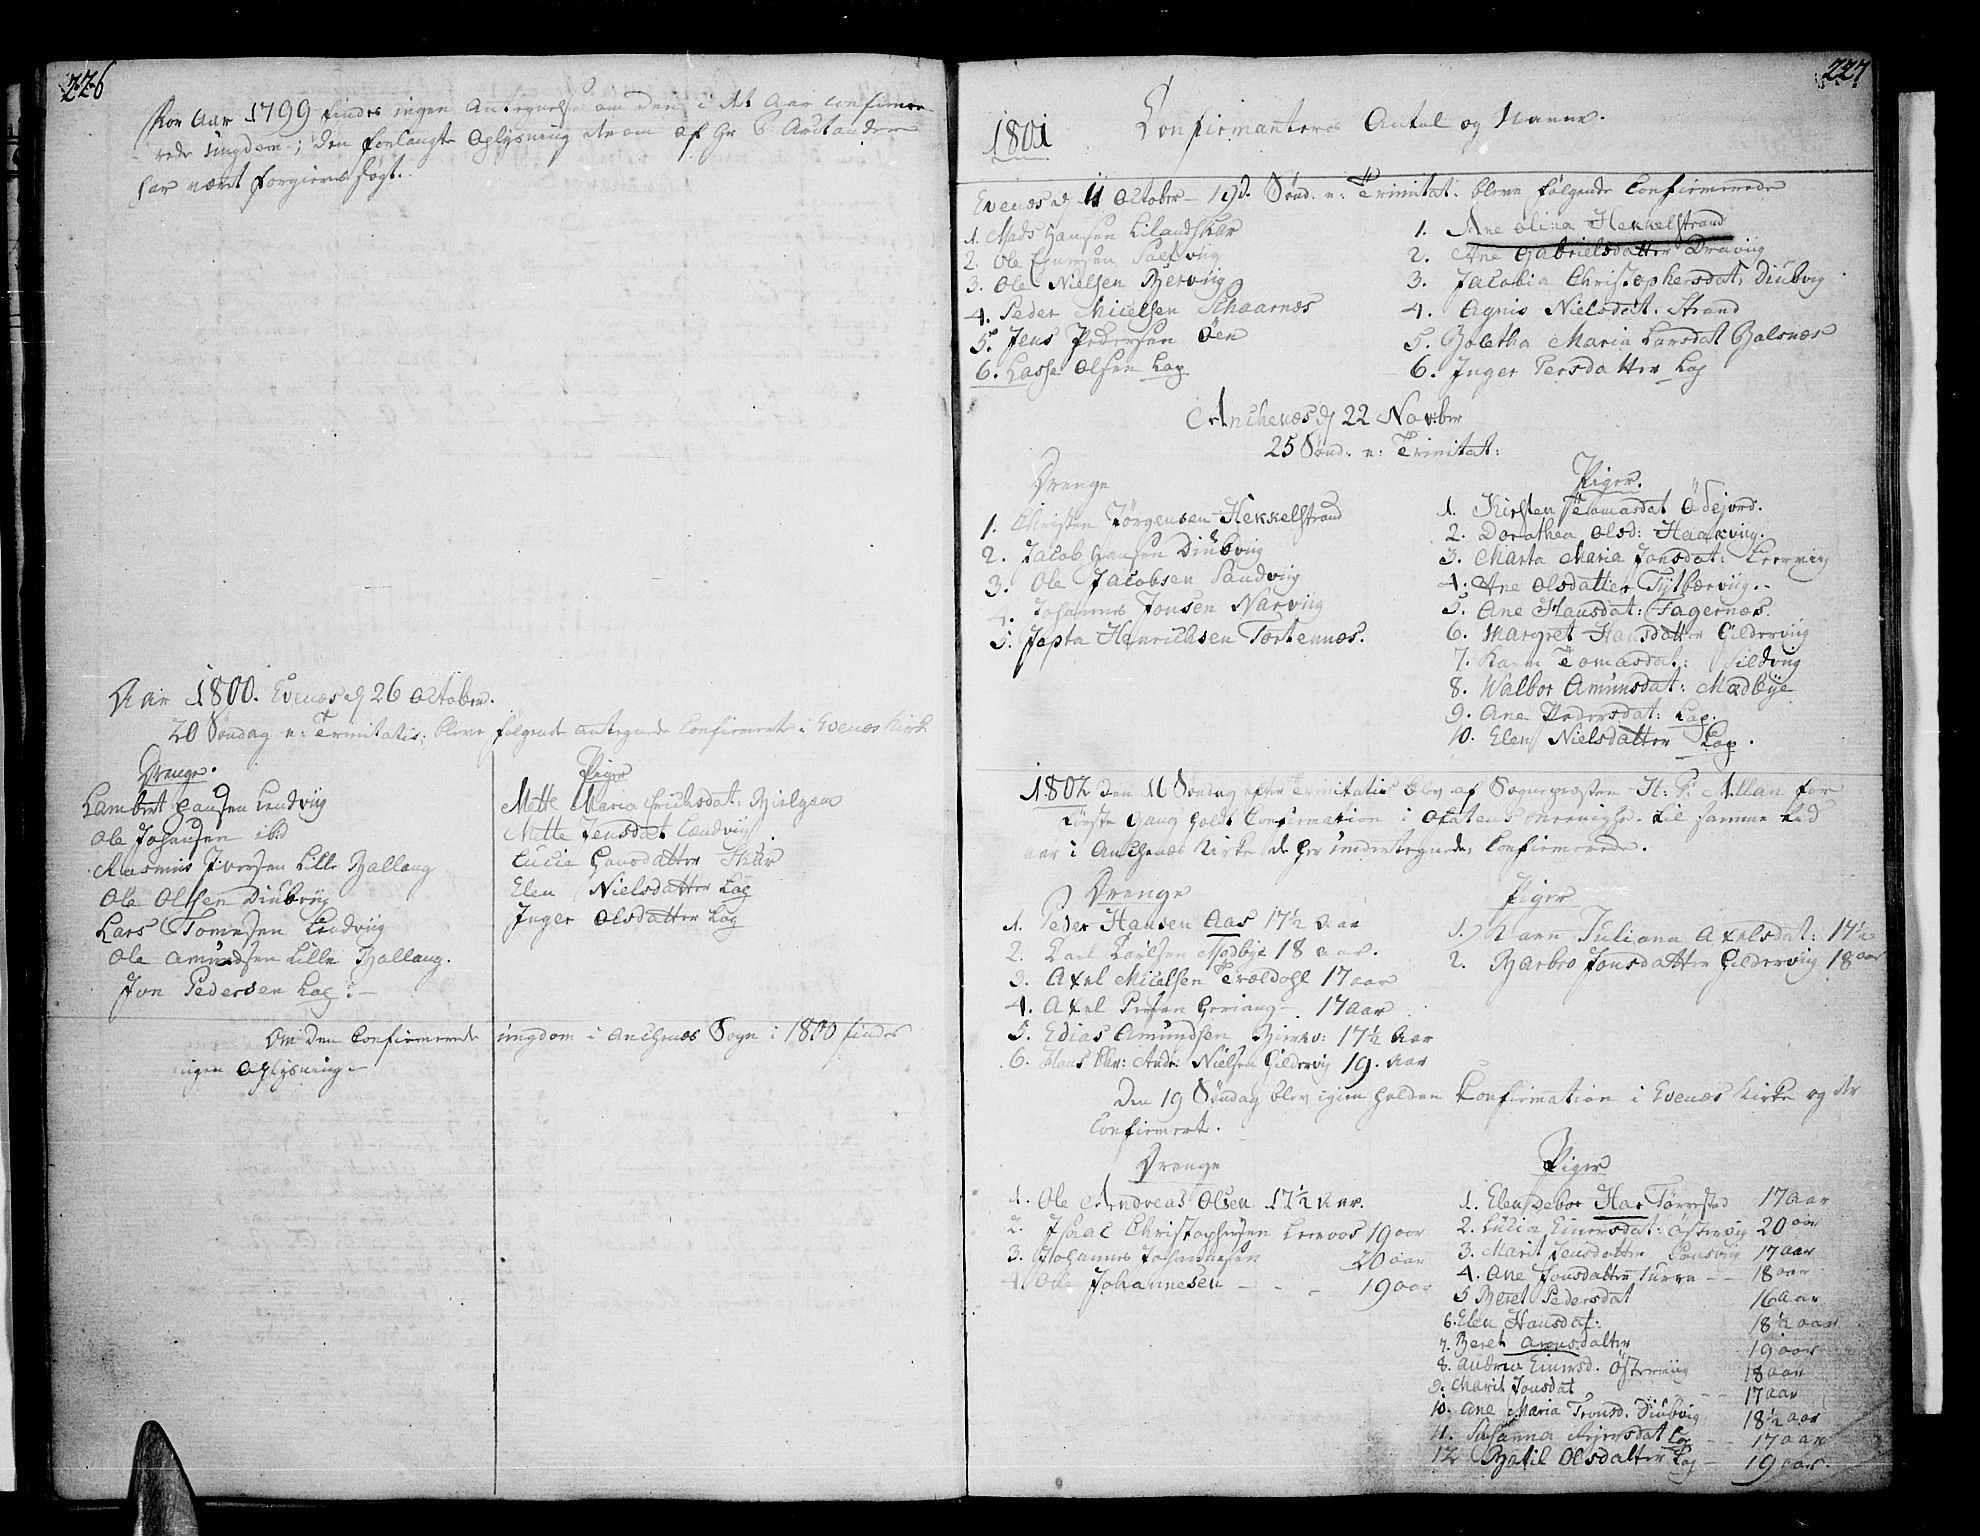 226
For Aar 1799 findes ingen Antegnelse om den i det Aar confirme-
rede Ungdom; den forlangte Oplysning derom af Hr P.
har været forgieves søgt.
Aar 1800. Evenæs d 26 October.
20 Søndag n: Trinitatis; bleve følgende antegnede Confirmerte i Evenæs Kirke
Drenge.
Lambret Hansen Lendviig
Ole Johansen ibid
Rasmus Iversen Lille Ballang
Ole Olsen Diubviig
Lars Tomesen Lendviig
Ole Amundsen Lille Ballang.
Jon Pedersen Lap:
Piger
Mette Maria Erichsdat:
Mette Jensdat Lændviig
Lucie Hansdatter
Elen Nielsdatter Lap
Inger Olsdatter Lap
Om den Confirmerede ungdom i Anchenæs Sogn i 1800 findes
ingen Oplysning.
227
1801 Confirmanternes Antal og Navne.
Evenæs d 11 October - 19d. Sønd. n: Trinitat: bleve følgende Confirmerede
1. Mads Hansen Lilandskar
2. Ole Enersen
3. Ole Nielsen Berviig
4. Peder Micelsen Schaarnæs
5. Jens Pedersen Öen
6. Lasse Olsen Lap
1. Ane Olina Hekkelstrand
2. Ane Gabrielsdatter Draviig
3. Jacobia Christophersdat, Diubvig
4. Agnis Nielsdat. Strand
5. Boletha Maria Larsdat Balsnæs
6. Inger Persdatter Lap
Anchenæs d 22 Novber
25 Sønd. n: Trinitat:
Drenge
1. Christen Jörgensen Hekkelstrand
2. Jacob Hansen Diubviig
3. Ole Jacobsen Sandviig
4. Johannes Jonsen Narviig
5. Jepta Henrichsen Tortennæs.
Piger.
1. Kirsten Tomasdat Ödejord.
2. Dorothea Olsd: Haakviig.
3. Marta Maria Jonsdat: Leerviig
4. Ane Olsdatter Tytbærviig.
5. Ane Hansdat: Fagernæs.
6. Margret Hansdatter Gilderviig
7. Karn Tomasdat: Sildvig
8. Walbor Amunsdat: Madbye
9. Ane Pedersdat: Lap.
10. Elen Nielsdatter Lap.
1802 den 16 Søndag efter Trinitatis blev af Sognepræsten H: P: Allan for
første Gang holdt Confirmation i Ofotens menighed til samme tid
var i Anchenæs Kirke de her undertegnede, Confirmerede.
Drenge
1. Peder Hansen Aas 17½ Aar
2. Carl Carlsen Modbye 18 aar.
3. Axel Micelsen Trældahl 17 aar
4. Axel Persen - 17 aar
5. Edias Amundsen 17½ Aar
6. Hans Chr: Andr: Nielsen Gildervig 19. aar
Piger
1. Karn Juliana Axelsdat: 17½
2. Barbro Jonsdatter Gildervig 18 aar
Den 19 Søndag blev igien holden Confirmation i Evenæs Kirke og der
Confirmert.
Drenge
1. Ole Andreas Olsen 17½ aar.
2. Isaac Christophersen Leeraas 19 aar
3. Johannes Johannesen 20 aar
4. Ole Johannesen - - - 19 aar
Piger
1. Elen Debor Har Tørrestad 17 aar
2. Lucia Einersdat: Østerviig 20 aar
3. Marit Jensdatter 17 aar
4. Ane Jonsdatter - - 18 aar
5 Beret Pedersdat 16 aar
6. Elen Hansdat: 18½ aar
7. Beret Arensdatter 19 aar
8. Andrea Einersd. Østerviig 18 aar
9. Marit Jonsdat - - 17 aar
10. Ane Maria Tronsd. Diubvig 18½ aar
11. Susanna Lap 17 aar
12 Botil Olsdatter Lap - 19 aar.